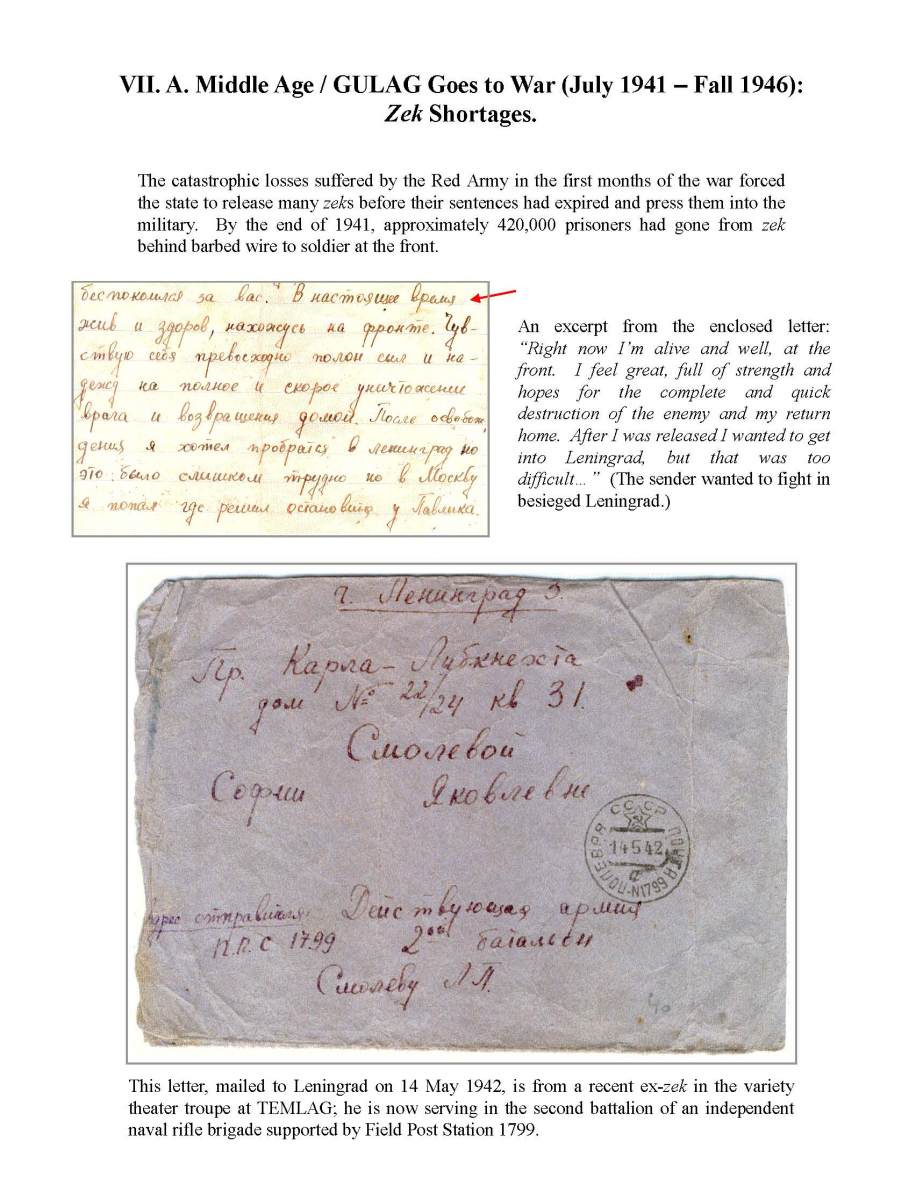 VII. A. Middle Age / GULAG Goes to War (July 1941 – Fall 1946):
Zek Shortages.
The catastrophic losses suffered by the Red Army in the first months of the war forced
the state to release many zeks before their sentences had expired and press them into the
military. By the end of 1941, approximately 420,000 prisoners had gone from zek
behind barbed wire to soldier at the front.
беспокоился за вас. В настоящее время
жив и здоров, нахожусь на фронте. Чув-
ствую себя превосходно полон сил и на-
дежд на полное и скорое уничтожение
врага и возвращения домой. После освобож
дения я хотел пробратся в ленинград но
это было слишком трудно но в Москву
я попал где решил остановится у Павлика.
An excerpt from the enclosed letter:
“Right now I’m alive and well, at the
front. I feel great, full of strength and
hopes for the complete and quick
destruction of the enemy and my return
home. After I was released I wanted to get
into Leningrad, but that was too
difficult…” (The sender wanted to fight in
besieged Leningrad.)
г. Ленинград 3.
Пр. Карла-Либкнехта
дом № 22/24 кв 31.
Смолевой
Софии Яковлевне
СССР
ПОЛЕВАЯ ПОЧТА
14542
а
N1799
Адрес отправителя: Действующая армия
П.П.С 1799 2ой батальон
Смолеву Л.П.
This letter, mailed to Leningrad on 14 May 1942, is from a recent ex-zek in the variety
theater troupe at TEMLAG; he is now serving in the second battalion of an independent
naval rifle brigade supported by Field Post Station 1799.